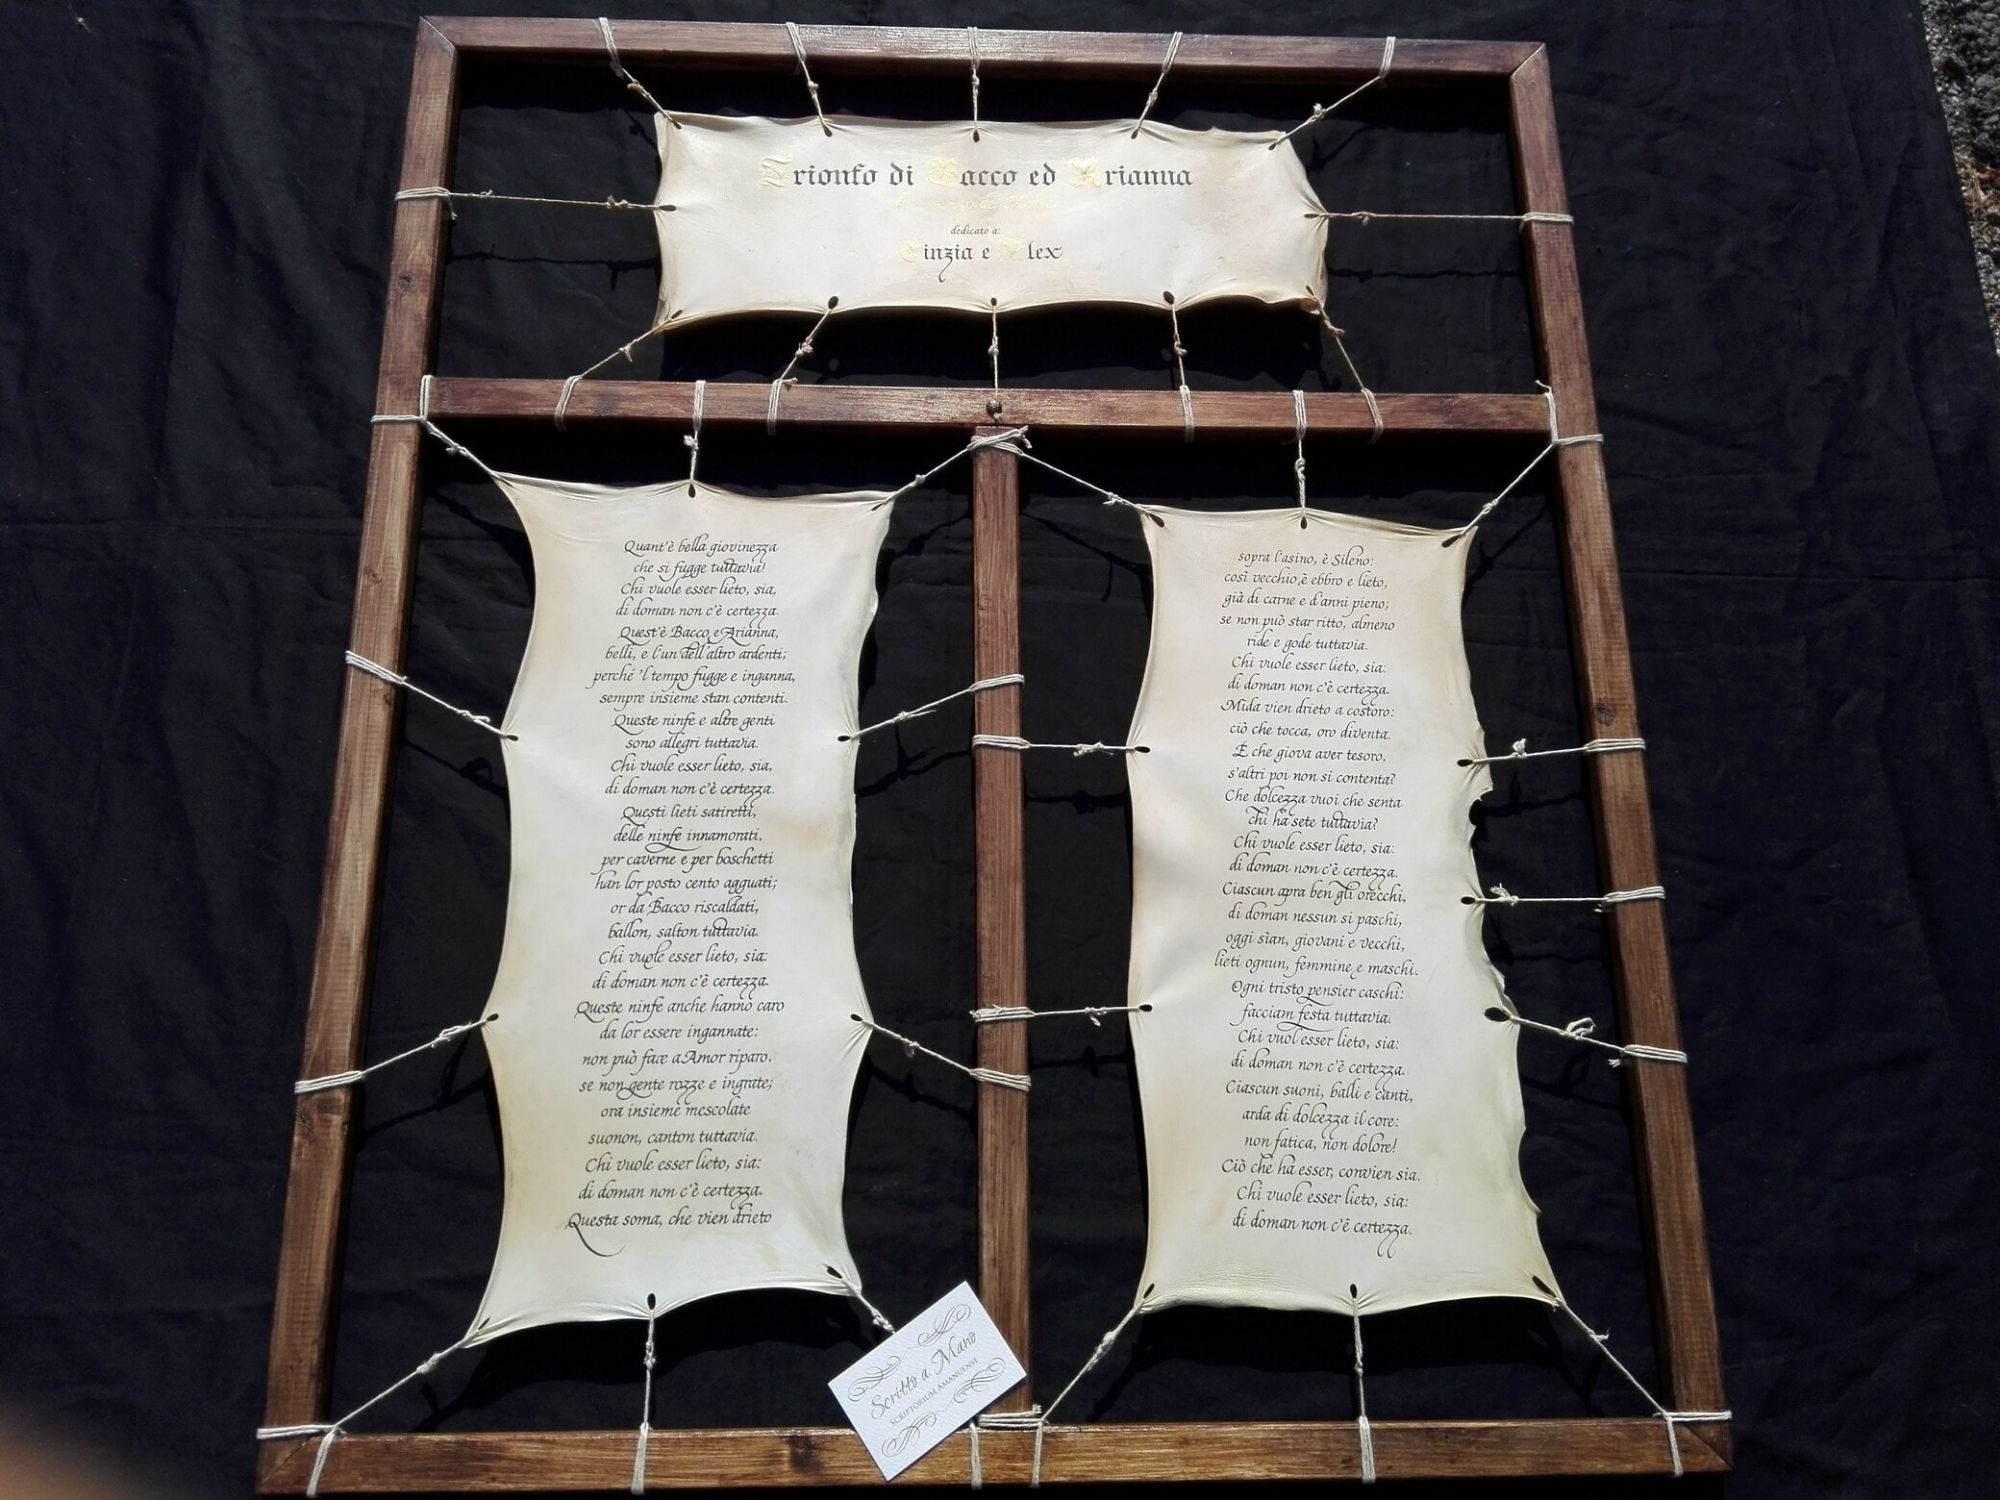 Trionfo di Bacco ed Arianna
dedicato a:
Cinzia e Alex
Quant'è bella giovinezza
che si fugge tuttavia!
Chi vuole esser lieto, sia,
di doman non c'è certezza.
Quest'è Bacco e Arianna,
belli, e l'un dell'altro ardenti;
perché 'l tempo fugge e inganna,
sempre insieme stan contenti.
Queste ninfe e altre genti
sono allegri tuttavia.
Chi vuole esser lieto, sia,
di doman non c'è certezza.
Questi lieti satiretti,
delle ninfe innamorati,
per caverne e per boschetti
han lor posto cento agguati;
or da Bacco riscaldati,
ballon, salton tuttavia.
Chi vuole esser lieto, sia:
di doman non c'è certezza.
Queste ninfe anche hanno caro
da lor essere ingannate:
non può fare a Amor riparo,
se non gente rozze e ingrate;
ora insieme mescolate
suonon, canton tuttavia.
Chi vuole esser lieto, sia:
di doman non c'è certezza.
Questa soma, che vien drieto
sopra l'asino, è Sileno:
così vecchio,è ebbro e lieto,
già di carne e d'anni pieno;
se non può star ritto, almeno
ride e gode tuttavia.
Chi vuole esser lieto, sia:
di doman non c'è certezza.
Mida vien drieto a costoro:
ciò che tocca, oro diventa.
E che giova aver tesoro,
s'altri poi non si contenta?
Che dolcezza vuoi che senta
chi ha sete tuttavia?
Chi vuole esser lieto, sia:
di doman non c'è certezza.
Ciascun apra ben gli orecchi,
di doman nessun si paschi,
oggi sìan, giovani e vecchi,
lieti ognun, femmine e maschi.
Ogni tristo pensier caschi:
facciam festa tuttavia.
Chi vuol esser lieto, sia:
di doman non c'è certezza.
Ciascun suoni, balli e canti,
arda di dolcezza il core:
non fatica, non dolore!
Ciò che ha esser, convien sia.
Chi vuole esser lieto, sia:
di doman non c'è certezza.
Scritto a Mano
SCRIPTORIUM AMANUENSE